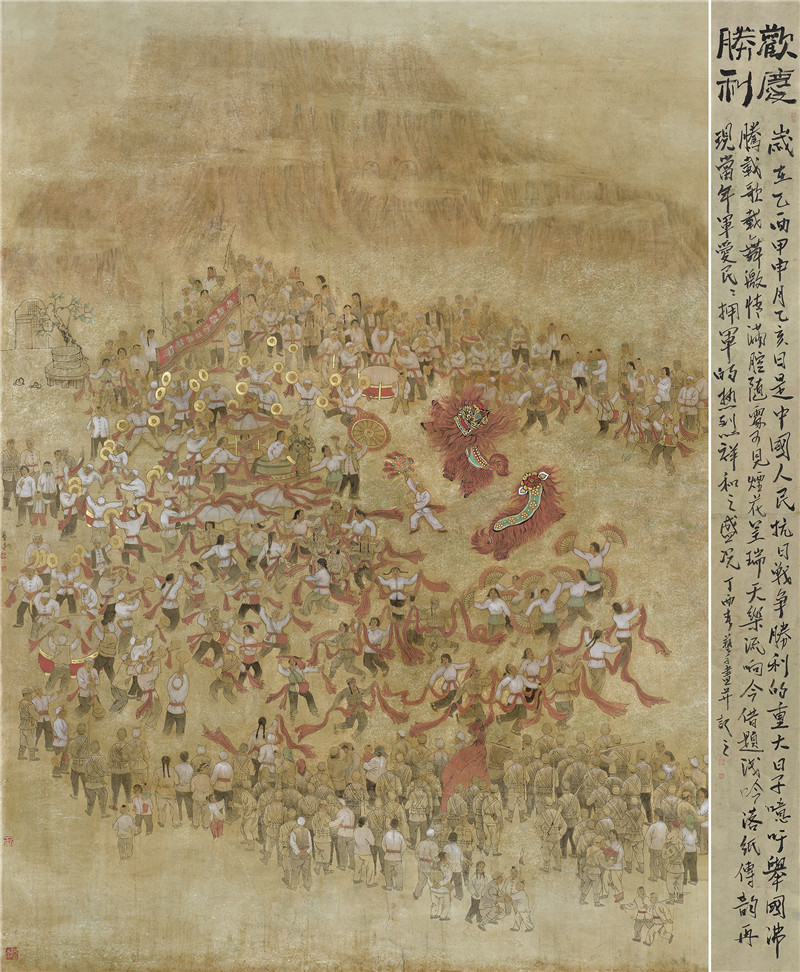 歡慶
勝利
歲在乙酉甲申月乙亥日是中國人民抗日戰争勝利的重大日子噫吁舉國沸
騰載歌載舞激情滿腔随處可見煙花呈瑞天樂流响今借題淺吟落紙傳韵再
現當年軍愛民〻拥軍的热烈祥和之盛况 丁酉春畫并記之